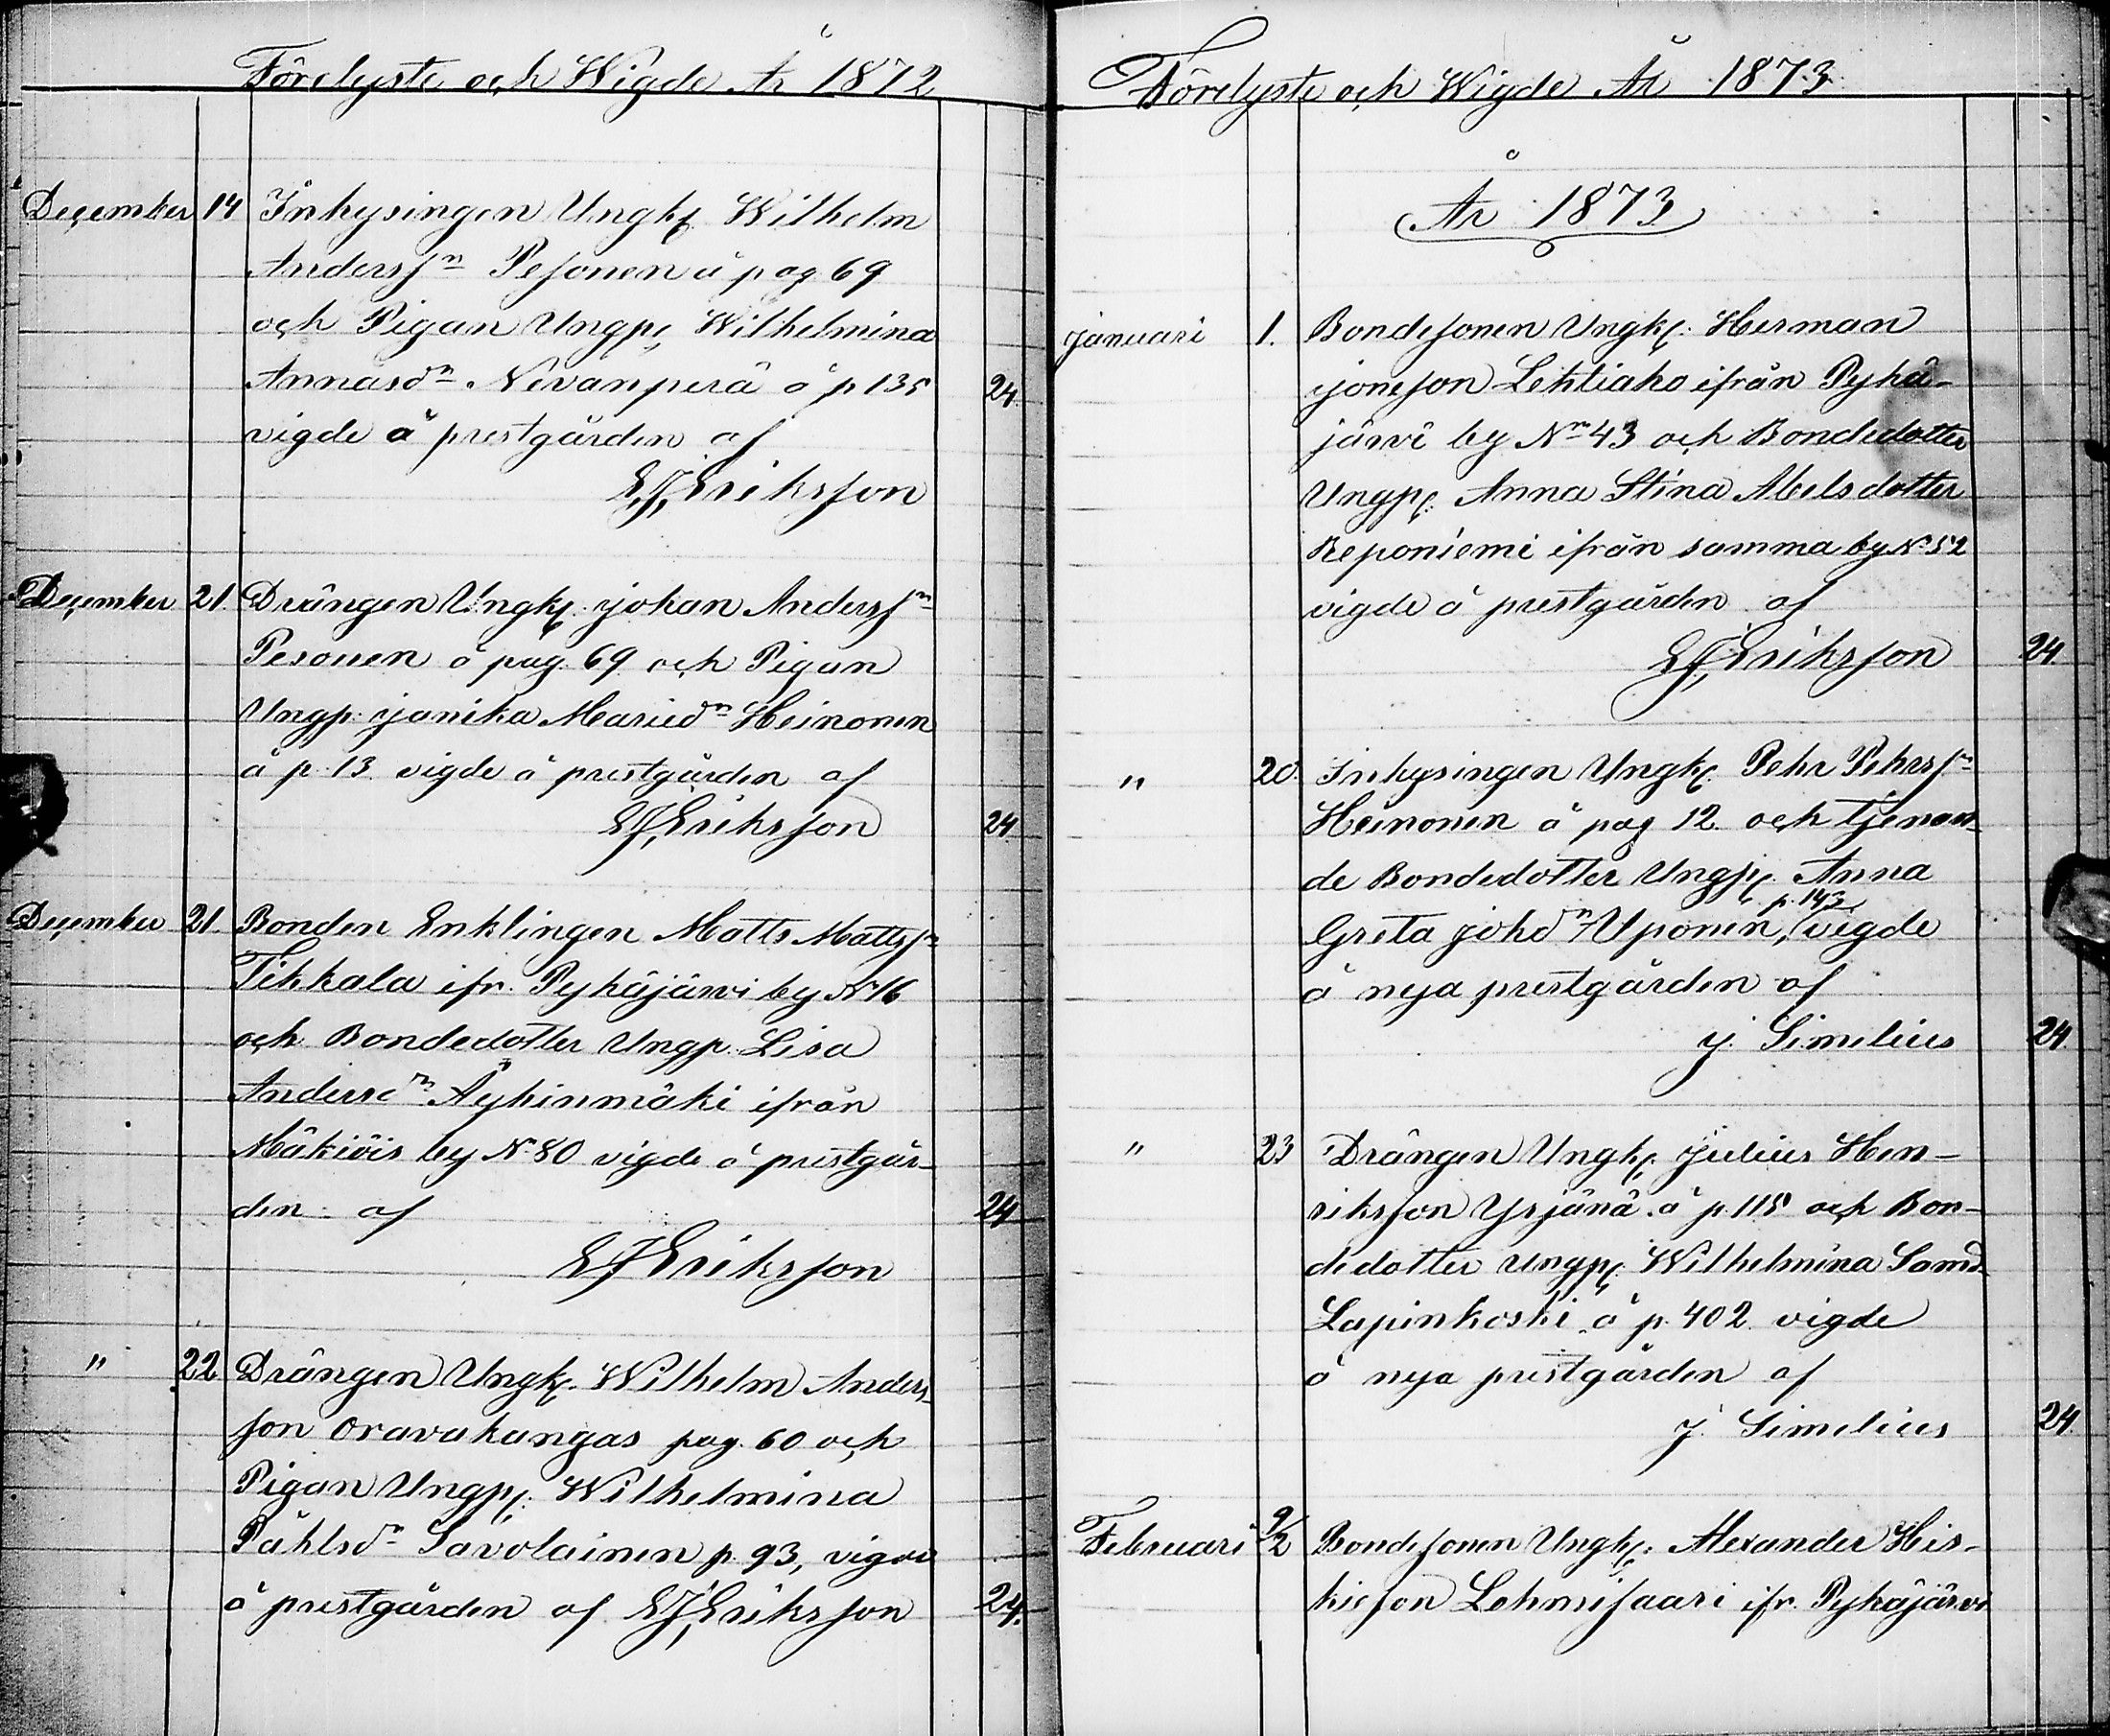 Förelyste och Wigde År 1872
December 14 Inhysingen Ungk. Wilhelm
Anderssn Pesonen å pag 69
och Pigan Ungp. Wilhelmina
Annasdr Nevanperä å p 135 24.
vigde å prestgården af
E.J. Eriksson
December 21. Drängen Ungk. Johan Anderssn
Pesonen å pag. 69 och Pigan
Ungp. Janika Mariedr Heinonen
å p. 13. vigde å prestgården af
E.J. Eriksson 24
December 21. Bonden Enklingen Matts Mattssn
Tikkala ifr. Pyhäjärvi by No 16
och Bondedotter Ungp. Lisa
Andersdr Äyhinmäki ifrån
Mäkiöis by No 80 vigde å prestgår-
den af 24
E J Eriksson
" 22 Drängen Ungk. Wilhelm Anders-
son Oravakangas pag. 60 och
Pigan Ungp. Wilhelmina
Påhlsdr Savolainen p. 93, vigde
å prestgården af E.J. Eriksson 24.
Förelyste och Wigde År 1873.
År 1873
Januari 1. Bondesonen Ungk. Herman
Jonesson Lehtiaho ifrån Pyhä-
järvi by No 43 och Bondedotter
Ungp. Anna Stina Abelsdotter
Reponiemi ifrån samma by No 52
vigde å prestgården af
E.J. Eriksson 24
" 20. Inhysingen Ungk. Pehr Pehrssn
Heinonen å pag 12. och tjenan-
de Bondedotter Ungp. Anna
p. 143,
Greta Johdr Uponen, vigde
å nya prestgården af
J. Simelius 24.
" 23 Drängen Ungk. Julius Hen-
riksson Yrjänä å p. 115 och Bon-
dedotter Ungp. Wilhelmina Samd.
Lapinkoski å p. 402 vigde
å nya prestgården af
J. Simelius 24.
Februari 9/2 Bondesonen Ungk. Alexander His-
kiesson Lohmisaari ifr. Pyhäjärvi